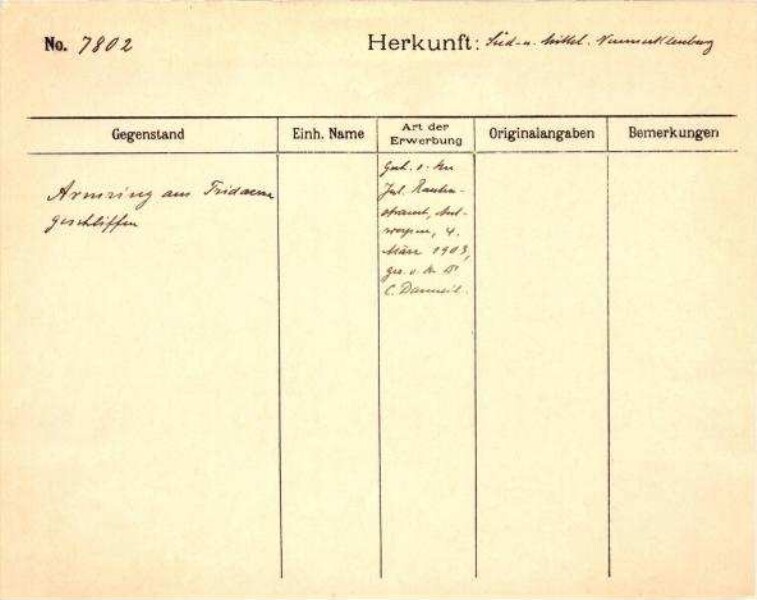 No. 7802
Herkunft: Süd- u. Mittel. Neumecklenburg
Gegenstand
Einh. Name
Art der
Erwerbung
Originalangaben
Bemerkungen
Armring aus Tridacna
geschliffen
Gesch. v. Hrn
Jul. Rauten-
strauch, Ant-
werpen, 4.
März 1903,
ges. v. Hr. Dr
C. Danneil.